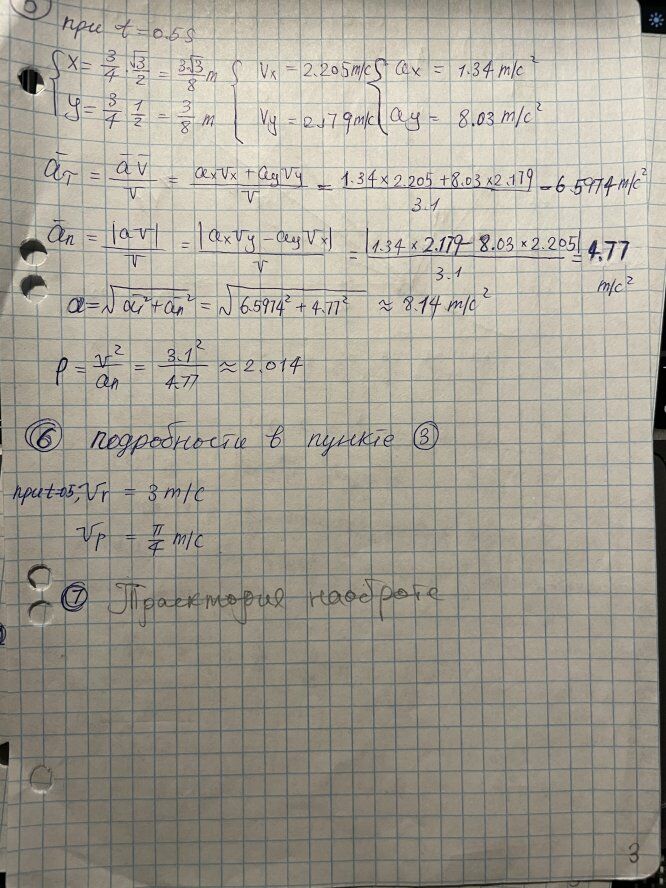 5 при t = 0.5s
{ x = 3/4 · √3/2 = 3√3/8 m { Vx = 2.205 m/c { ax = 1.34 m/c²
y = 3/4 · 1/2 = 3/8 m Vy = 2.179 m/c ay = 8.03 m/c²
āτ = āv̄/v = (axVx + ayVy)/V = (1.34×2.205 + 8.03×2.179)/3.1 = 6.5974 m/c²
ān = |āv̄|/v = |axVy − ayVx|/V = |1.34×2.179 − 8.03×2.205|/3.1 = 4.77 m/c²
a = √(aτ² + an²) = √(6.5974² + 4.77²) ≈ 8.14 m/c²
ρ = v²/an = 3.1²/4.77 ≈ 2.014
⑥ подробности в пункте ③
при t=0.5, Vr = 3 m/c
Vp = π/4 m/c
⑦ Траектория наоброте
3